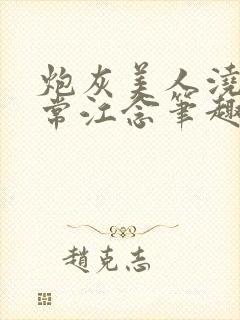 炮灰美人澆
常江念筆趣
趙克志